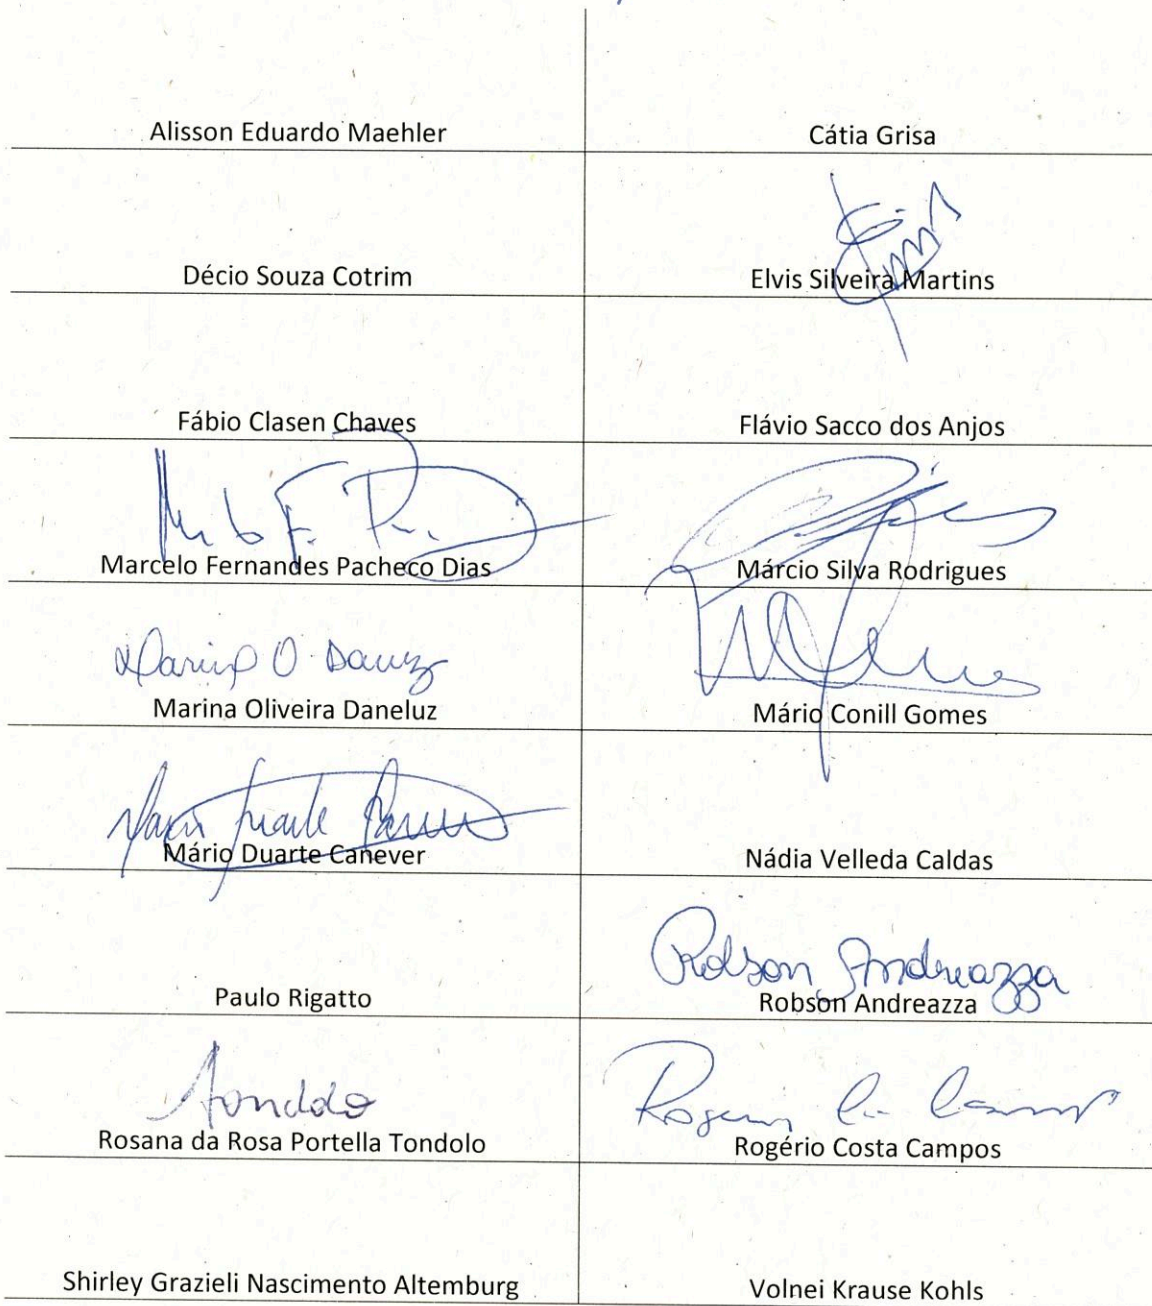 Alisson Eduardo Maehler
Cátia Grisa
Décio Souza Cotrim
Elvis Silveira Martins
Fábio Clasen Chaves
Flávio Sacco dos Anjos
Marcelo Fernandes Pacheco Dias
Márcio Silva Rodrigues
Marina O.
Marina Oliveira Daneluz
Mário Conill Gomes
Mário Duarte Canever
Nádia Velleda Caldas
Robson Andreazza
Paulo Rigatto
Robson Andreazza
Tondolo
Rosana da Rosa Portella Tondolo
Rogério Costa Campos
Shirley Grazieli Nascimento Altemburg
Volnei Krause Kohls